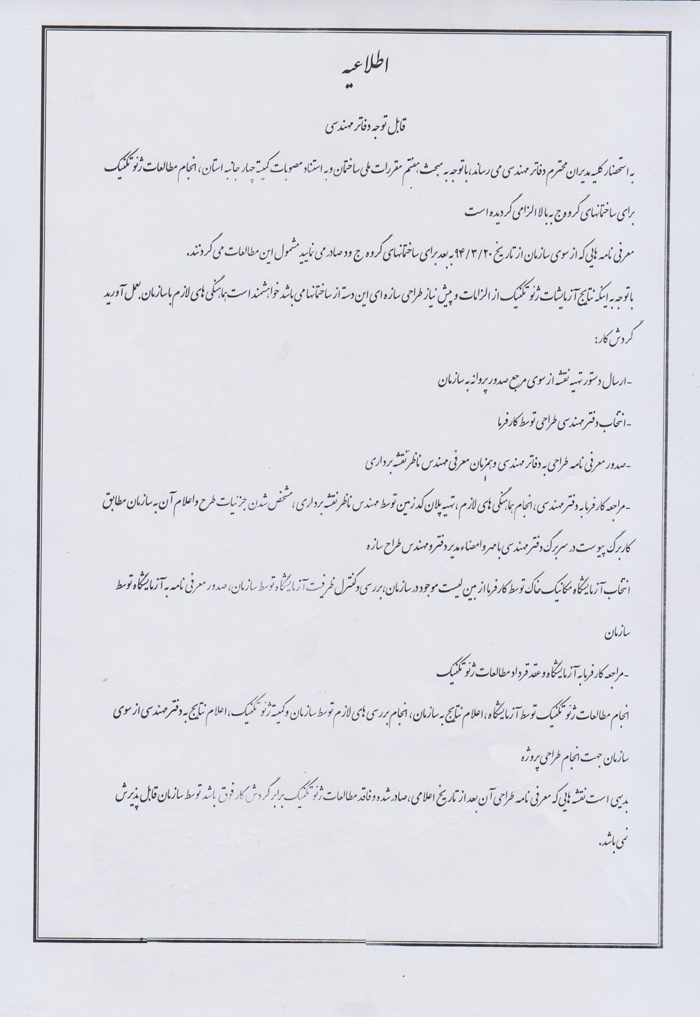 اطلاعیه
قابل توجه دفاتر مهندسی
به استحضار کلیه مدیران محترم دفاتر مهندسی می رساند، باتوجه به مبحث هفتم مقررات ملی ساختمان و به استناد مصوبات کمیته چهار جانبه استان، انجام مطالعات ژئوتکنیک
برای ساختمانهای گروه ج به بالا الزامی گردیده است
معرفی نامه هایی که از سوی سازمان از تاریخ ۹۴/۳/۲۰ به بعد برای ساختمانهای گروه ج و د صادر می نماید مشمول این مطالعات می گردنند.
باتوجه به اینکه نتایج آزمایشات ژئوتکنیک از الزامات و پیش نیاز طراحی سازه ای این دسته از ساختمانها می باشد خواهشمند است هماهنگی های لازم با سازمان بعمل آورید
گردش کار:
-ارسال دستور تهیه نقشه از سوی مرجع صدور پروانه به سازمان
-انتخاب دفتر مهندسی طراحی توسط کارفرما
-صدور معرفی نامه طراحی به دفاتر مهندسی و همزمان معرفی مهندس ناظر نقشه برداری
-مراجعه کارفرما به دفتر مهندسی، انجام هماهنگی های لازم، تهیه پلان کد زمین توسط مهندس ناظر نقشه برداری، مشخص شدن جزئیات طرح و اعلام آن به سازمان مطابق
کاربرگ پیوست در سربرگ دفتر مهندسی با مهر و امضاء مدیر دفتر و مهندس طراح سازه
انتخاب آزمایشگاه مکانیک خاک توسط کارفرما از بین لیست موجود در سازمان، بررسی و کنترل ظرفیت آزمایشگاه توسط سازمان، صدور معرفی نامه به آزمایشگاه توسط
سازمان
-مراجعه کارفرما به آزمایشگاه و عقد قرداد مطالعات ژئوتکنیک
انجام مطالعات ژئوتکنیک توسط آزمایشگاه، اعلام نتایج به سازمان، انجام بررسی های لازم توسط سازمان و کمیته ژئوتکنیک، اعلام نتایج به دفتر مهندسی از سوی
سازمان جهت انجام طراحی پروژه
بدیهی است نقشه هایی که معرفی نامه طراحی آن بعد از تاریخ اعلامی، صادر شده و فاقد مطالعات ژئوتکنیک برابر گردش کار فوق باشد توسط سازمان قابل پذیرش
نمی باشد.